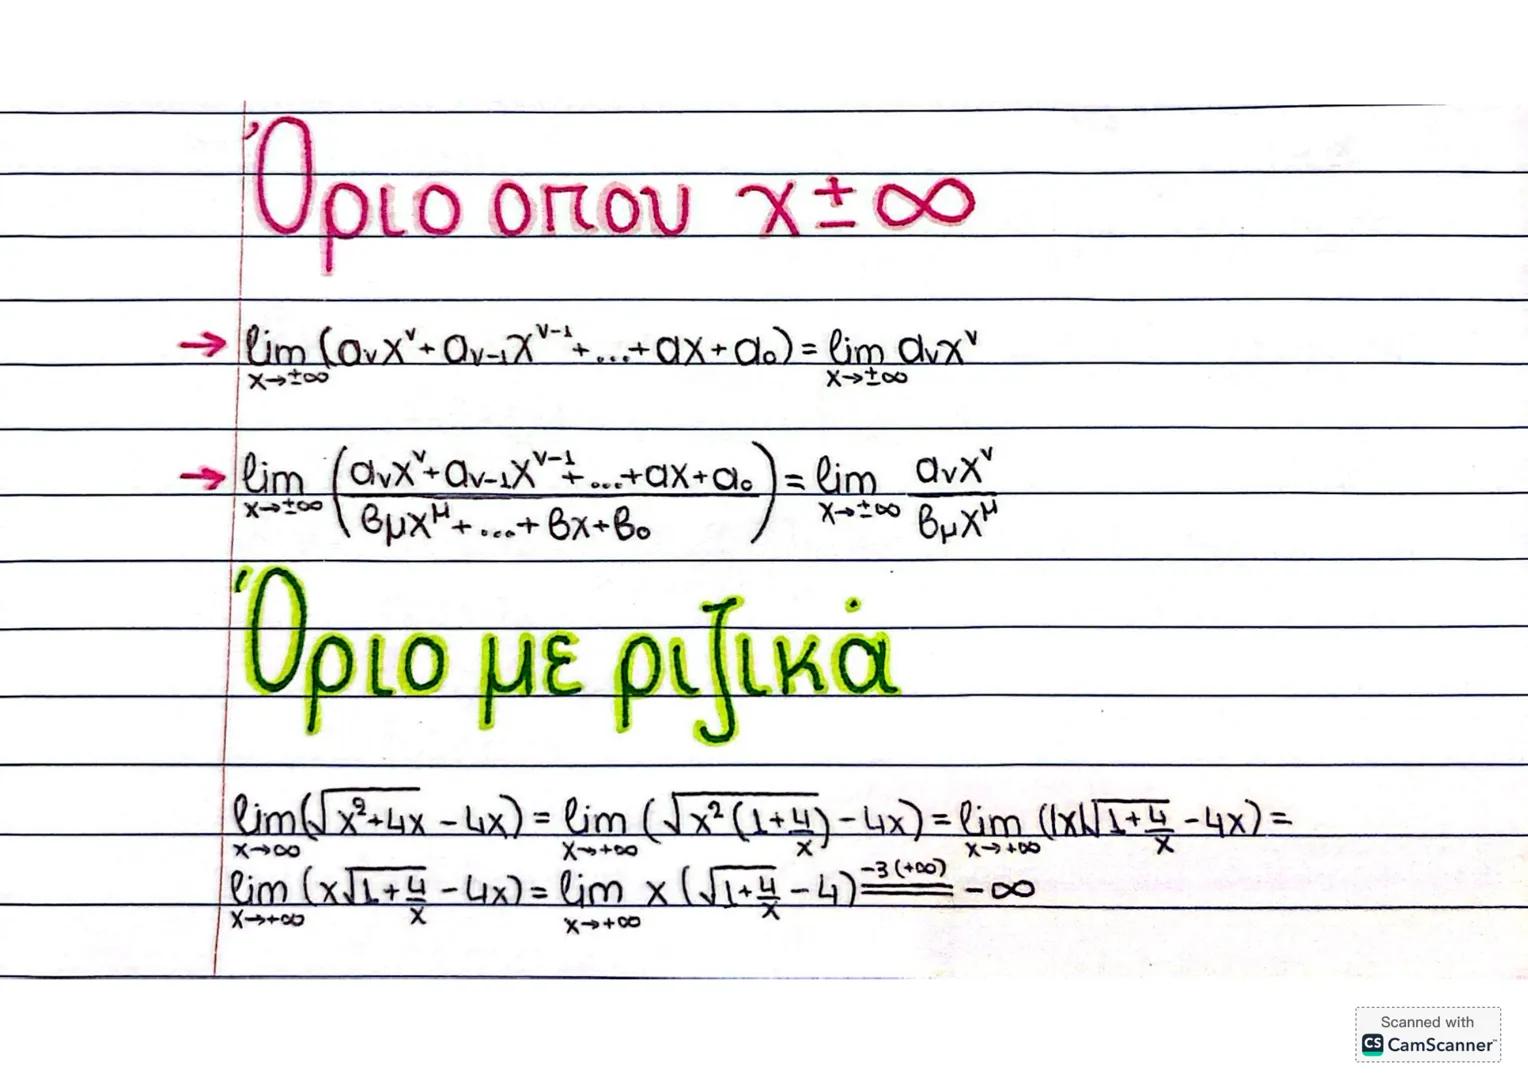 Όριο οπου x±∞
→ lim (aᵥxᵛ + aᵥ₋₁xᵛ⁻¹ + ... + ax + a₀) = lim aᵥxᵛ
x→±∞ x→±∞
→ lim (aᵥxᵛ + aᵥ₋₁xᵛ⁻¹ + ... + ax + a₀ / βμx^μ + ... + βx + β₀) = lim aᵥxᵛ / βμx^μ
x→±∞ x→±∞
Όριο με ριζικά
lim(√(x²+4x) - 4x) = lim (√(x²(1+4/x)) - 4x) = lim (|x|√(1+4/x) - 4x) =
x→∞ x→+∞ x→+∞
lim (x√(1+4/x) - 4x) = lim x(√(1+4/x) - 4) =^{-3(+∞)} -∞
x→+∞ x→+∞
Scanned with
CS CamScanner™